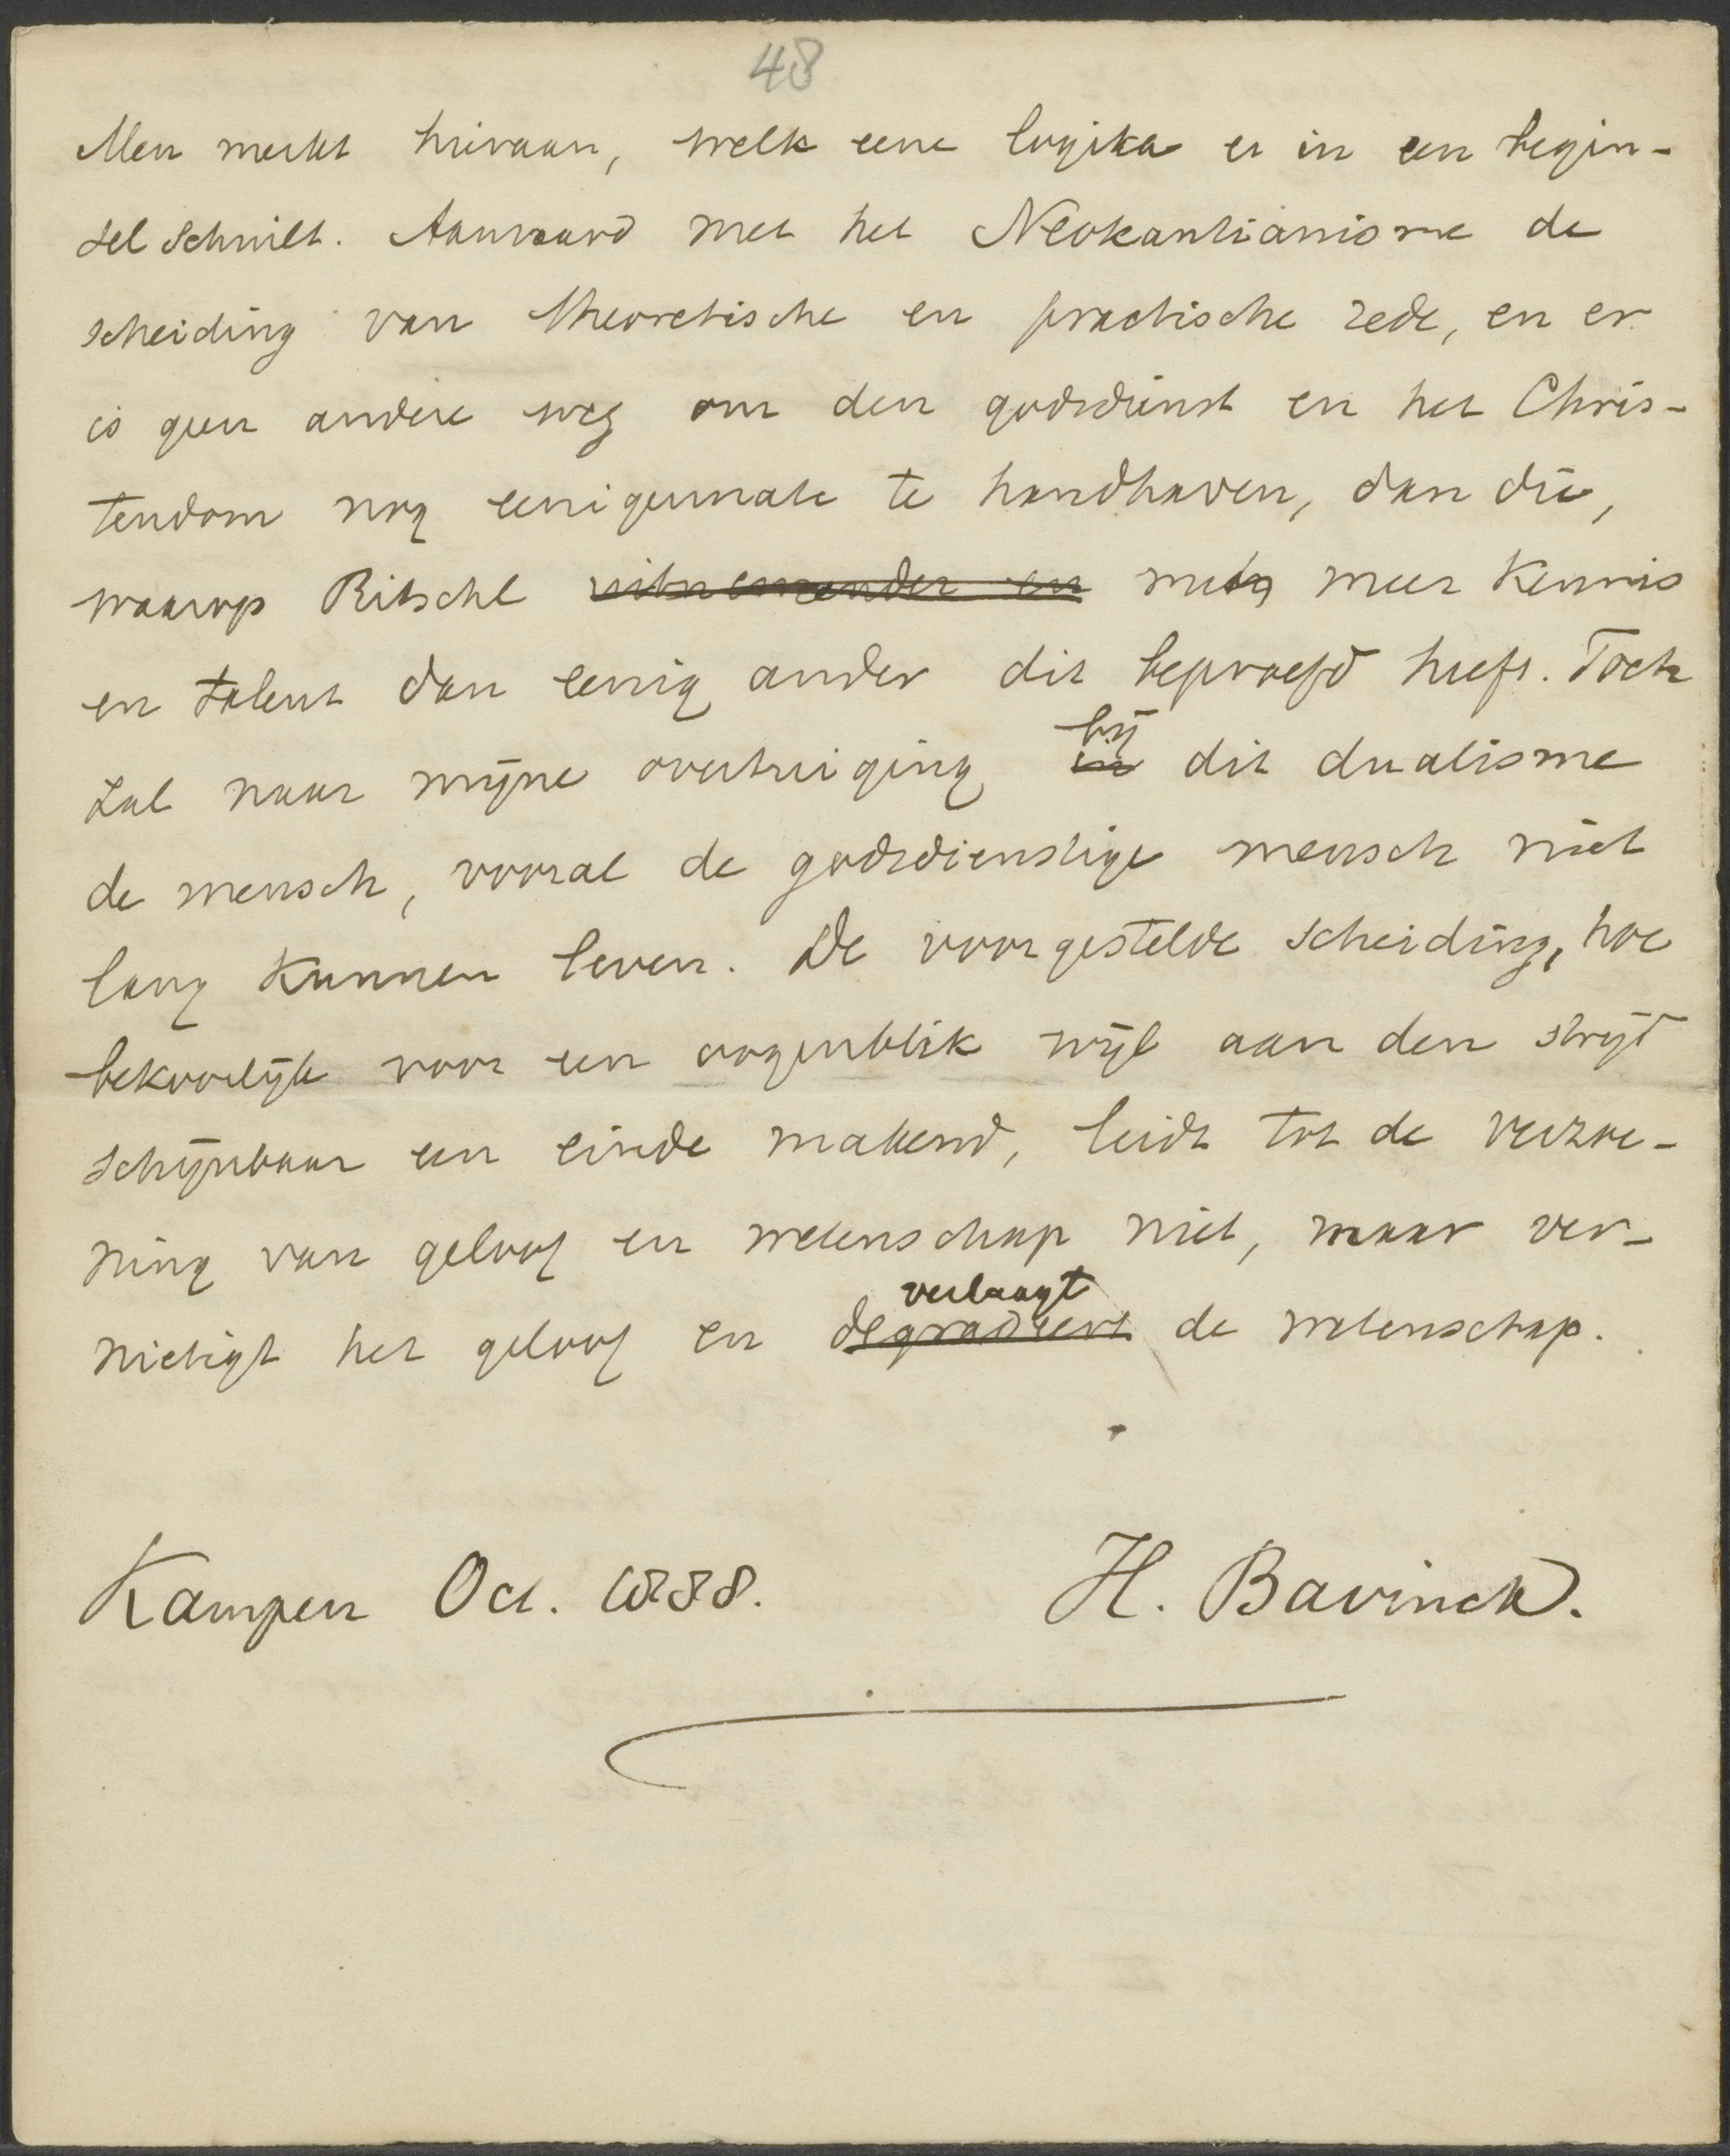 48
Men merkt hieraan, welk eene logika er in een begin-
sel schuilt. Aanvaard met het Neokantianisme de
scheiding van theoretische en practische rede, en er
is geen andere weg om den godsdienst en het Chris-
tendom nog eenigermate te handhaven, dan die,
waarop Ritschl uitnemender en met meer kennis
en talent dan eenig ander dit beproefd heeft. Toch
bij
zal naar mijne overtuiging in dit dualisme
de mensch, vooral de godsdienstige mensch niet
lang kunnen leven. De voorgestelde scheiding, hoe
bekoorlijk voor een oogenblik wijl aan den strijd
schijnbaar een einde makend, leidt tot de verzoe-
ning van geloof en wetenschap niet, maar ver-
verlaagt
nietigt het geloof en degradeert de wetenschap.
Kampen Oct. 1888. H. Bavinck.